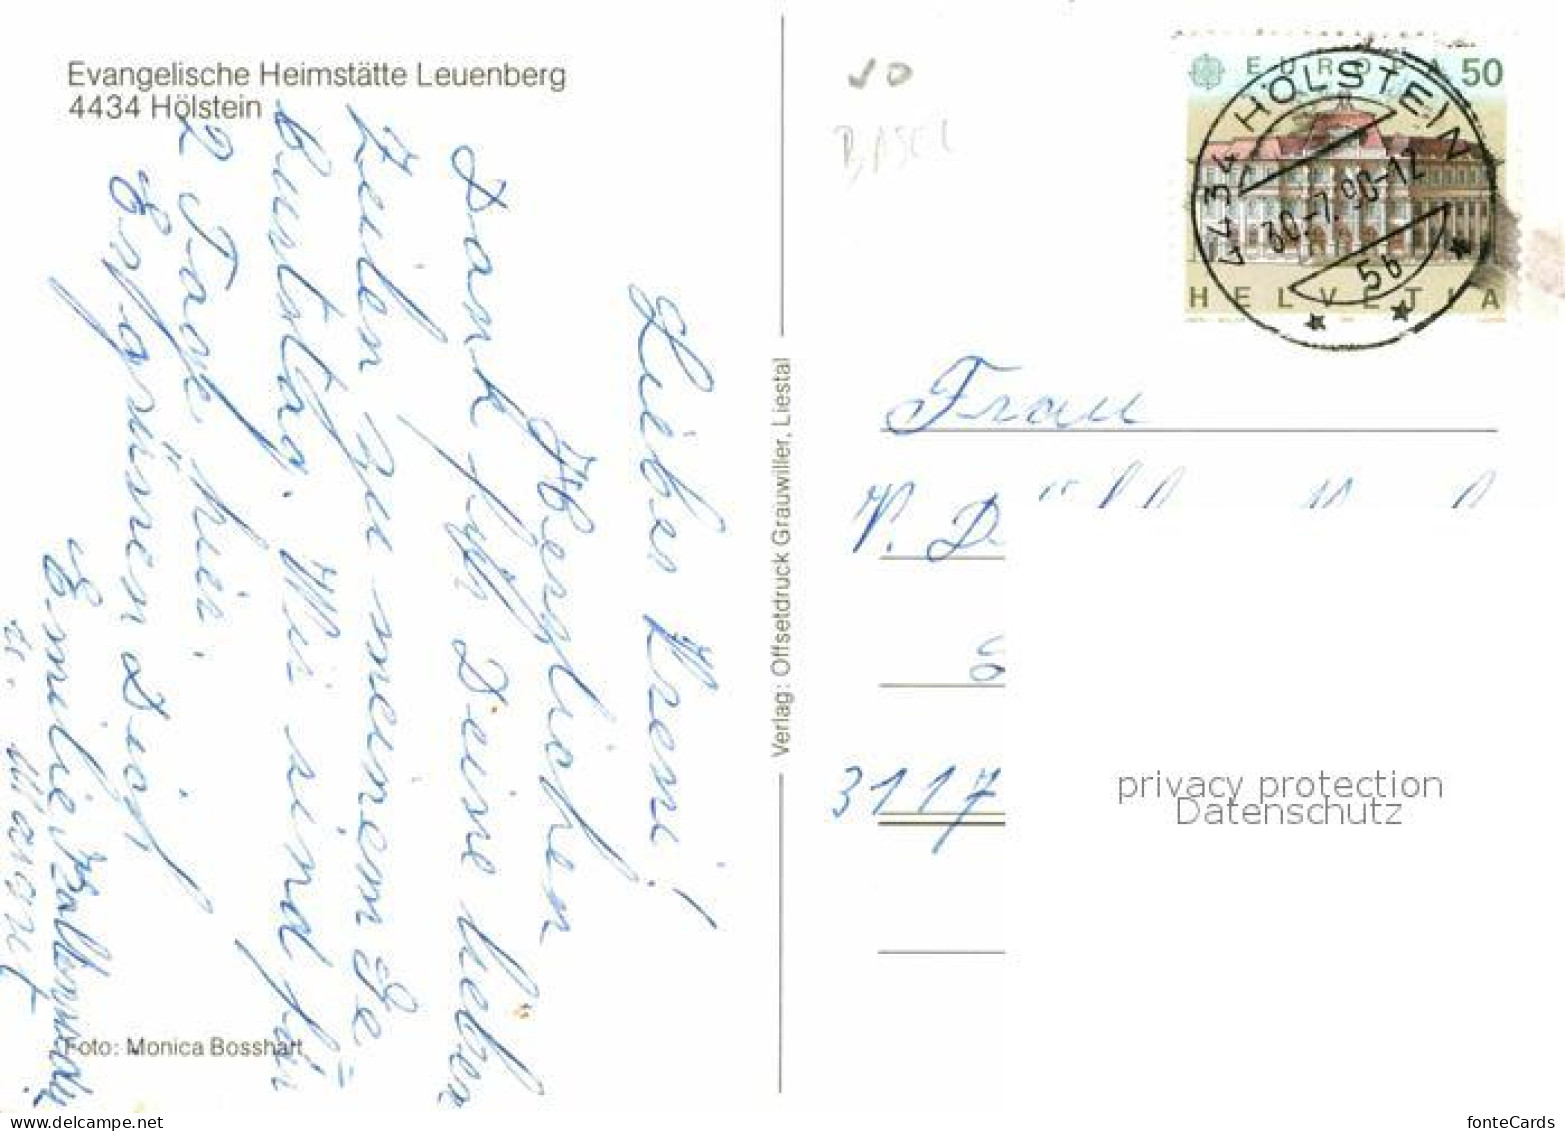 Evangelische Heimstätte Leuenberg
4434 Hölstein
Liebes Vreni!
Herzlichen
Dank für Deine lieben
Zeilen zu meinem Ge=
burtstag. Wir sind für
2 Tage hier.
Es grüssen Dich
Emilie
u. Margrit
Foto: Monica Bosshart
Verlag: Offsetdruck Grauwiller, Liestal
BASEL
EUROPA 50
HELVETIA
4434 HÖLSTEIN
30.-7.90-12
5b
Frau
V. D
3117
privacy protection
Datenschutz
fonteCards
www.delcampe.net